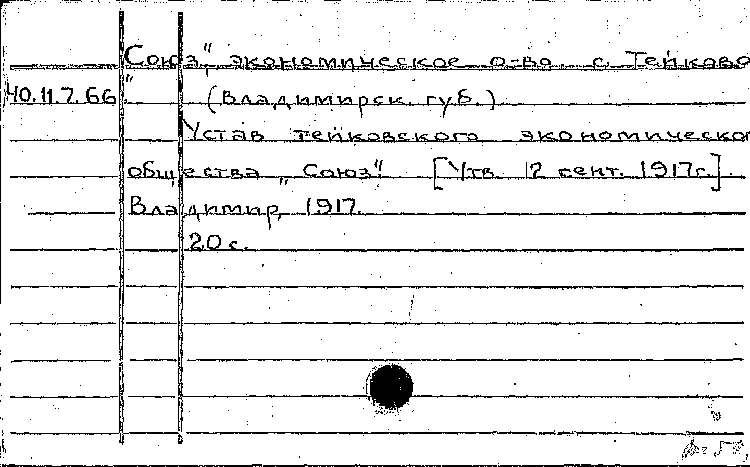 „Союз", экономическое о-во. с. Тейково
40.11.7.66. (Владимирск. губ.)
Устав тейковского экономическо
общества „Союз". [Утв. 12 сент. 1917г.].
Владимир, 1917.
20 с.